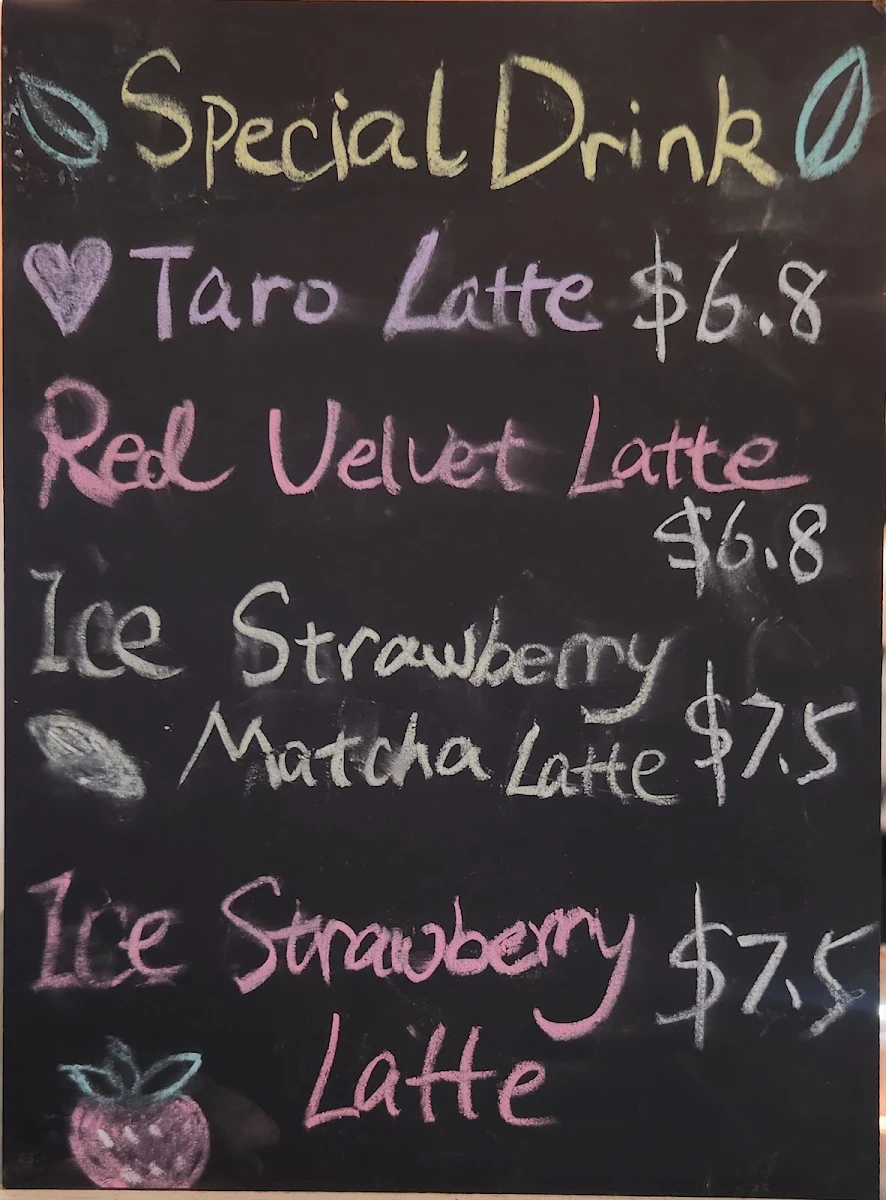 Special Drink
Taro Latte $6.8
Red Velvet Latte
$6.8
Ice Strawberry
Matcha Latte $7.5
Ice Strawberry $7.5
Latte